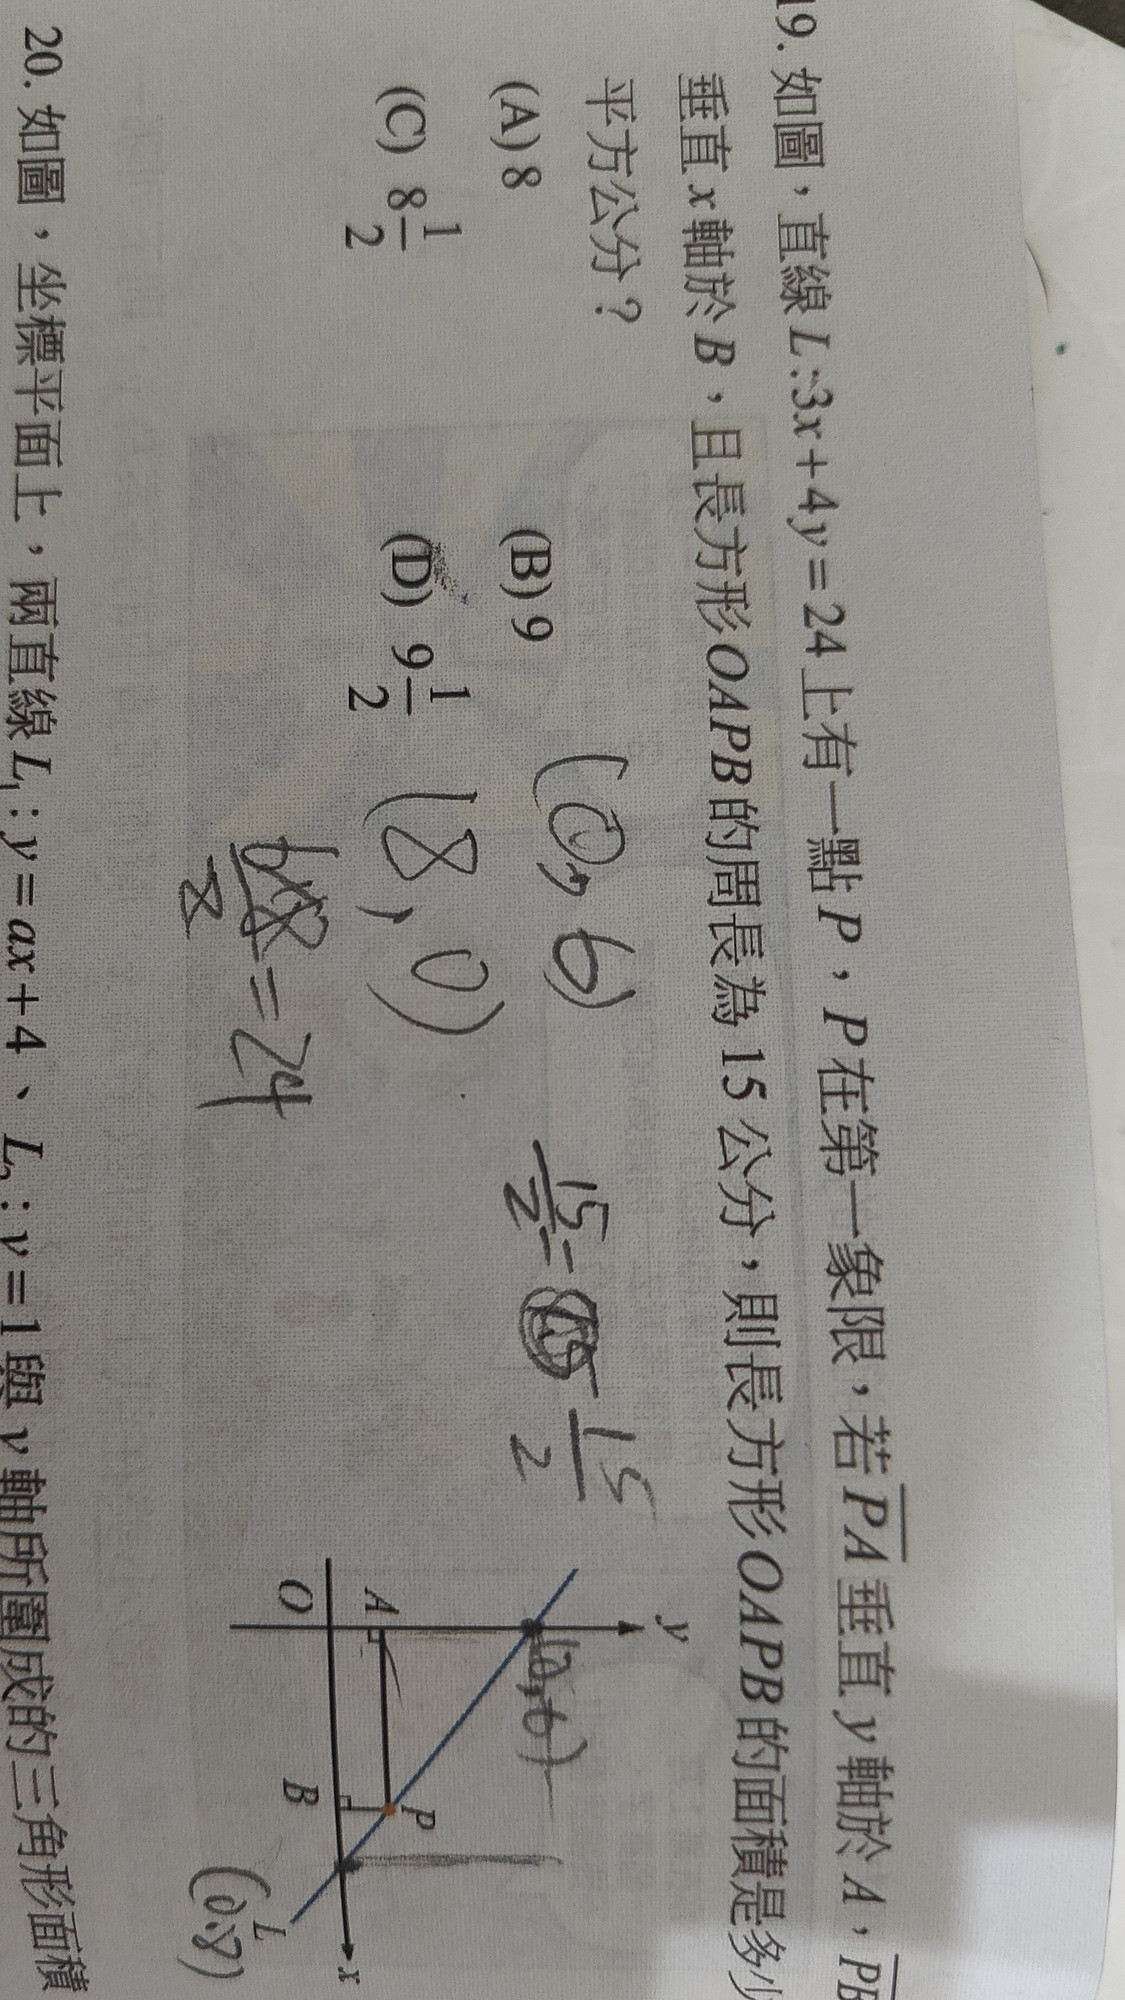 19. 如圖，直線L:3x+4y=24上有一點P，P在第一象限，若PA垂直y軸於A，PB
垂直x軸於B，且長方形OAPB的周長為15公分，則長方形OAPB的面積是多少
平方公分？
(A) 8
(B) 9
(C) 8 1/2
(D) 9 1/2
(0,6)
(8,0)
6×8/2=24
15/2=
15/2
y
(0,6)
A
P
O
B
x
L
(0,8)
20. 如圖，坐標平面上，兩直線L₁:y=ax+4、L₂:y=1與y軸所圍成的三角形面積